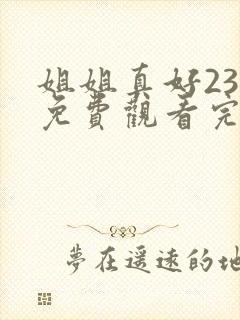 姐姐真好23
免費觀看完
夢在遥遠的地